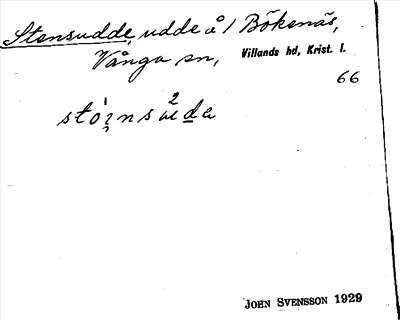 Stensudde, udde å 1 Bökenäs,
Vånga sn, Villands hd, Krist. l.
66
John Svensson 1929